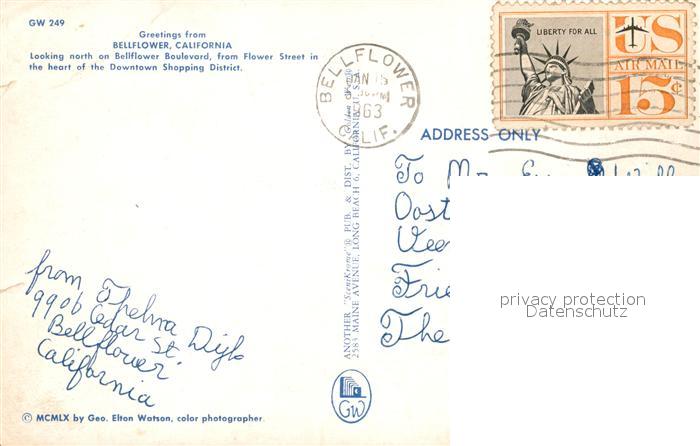 GW 249
Greetings from
BELLFLOWER, CALIFORNIA
Looking north on Bellflower Boulevard, from Flower Street in
the heart of the Downtown Shopping District.
BELLFLOWER
JAN 15
PM
1963
CALIF.
LIBERTY FOR ALL
US
AIR MAIL
15¢
ADDRESS ONLY
To Mr.
Oost
Vee
Frie
The
privacy protection
Datenschutz
ANOTHER "ScenKrome"® PUB. & DIST. BY Golden West
2583 MAINE AVENUE, LONG BEACH 6, CALIFORNIA, U.S.A.
from Thelma Dijk
9906 Cedar St.
Bellflower
California
GW
© MCMLX by Geo. Elton Watson, color photographer.